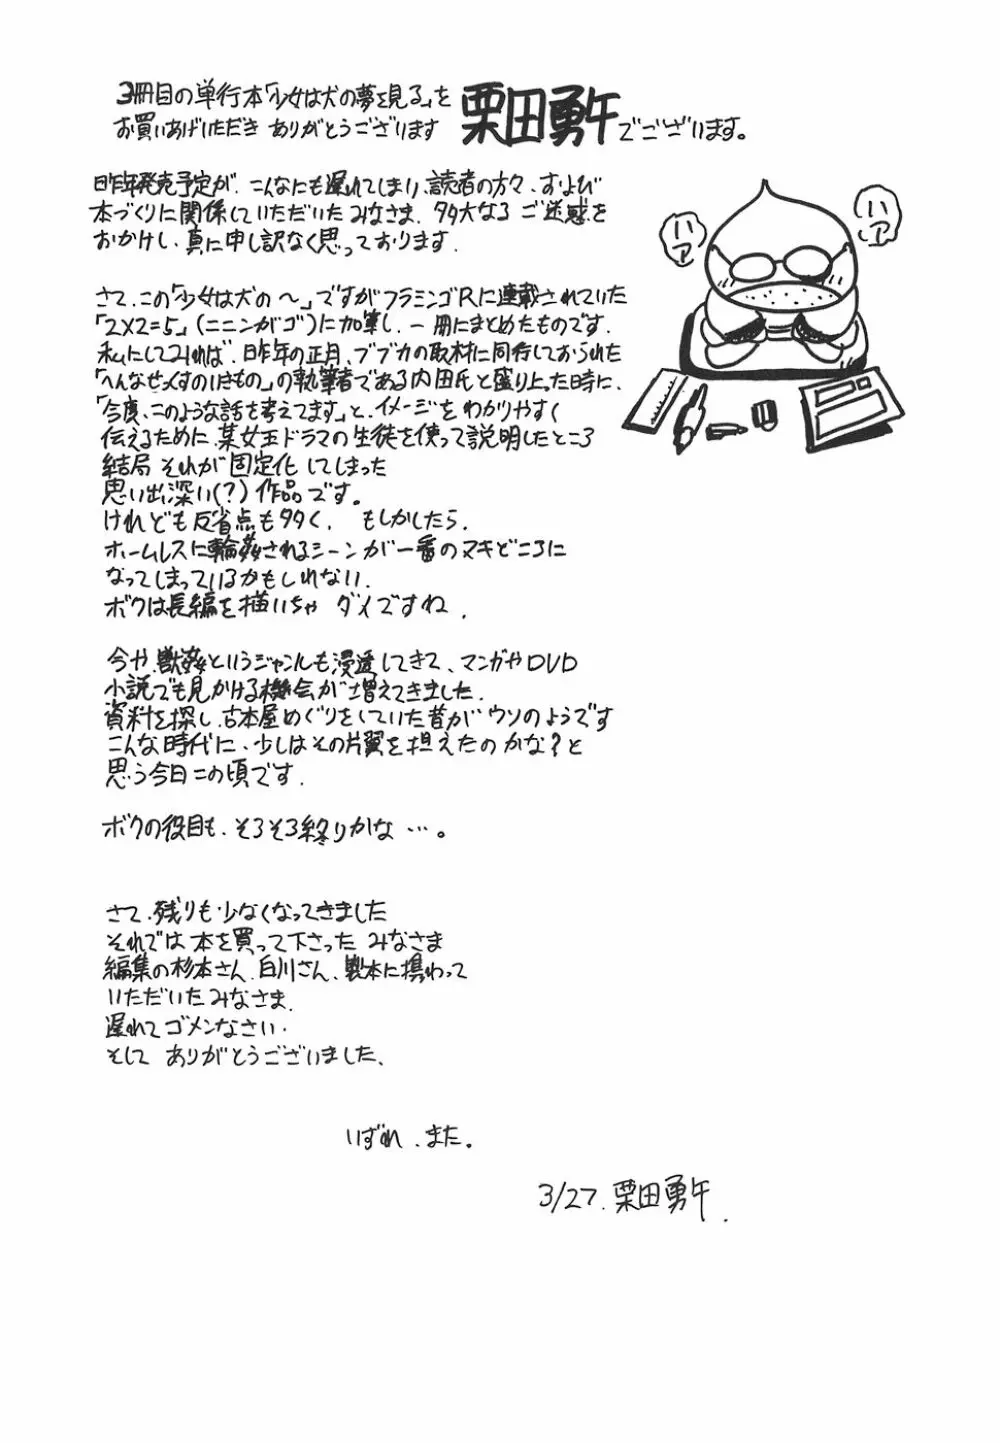 3冊目の単行本「少女は犬の夢を見る」を
お買いあげいただき ありがとうございます 栗田勇午でございます。
昨年発売予定が、こんなにも遅れてしまい、読者の方々、および
本づくりに関係していただいたみなさま、多大なる ご迷惑を
おかけし、真に申し訳なく思っております.
ハア
ハア
さて、この「少女は犬の〜」ですがフラミンゴRに連載されていた
「2X2=5」(ニニンがゴ)に加筆し、一冊にまとめたものです.
私にしてみれば、昨年の正月、ブブカの取材に同行しておられた
「へんなせっくすのいきもの」の執筆者である内田氏と盛り上った時に、
「今度、このような話を考えてます」と、イメージをわかりやすく
伝えるために、某女王ドラマの生徒を使って説明したところ
結局 それが固定化してしまった
思い出深い(?)作品です。
けれども反省点も多く、 もしかしたら、
ホームレスに輪姦されるシーンが一番のマキどころに
なってしまっているかもしれない.
ボクは長編を描いちゃ ダメですね.
今や、獣姦というジャンルも浸透してきて、マンガやDVD
小説でも見かける機会が増えてきました.
資料を探し、古本屋めぐりをしていた昔がウソのようです
こんな時代に、少しはその片翼を担えたのかな?と
思う今日この頃です.
ボクの役目も、そろそろ終りかな…。
さて、残りも少なくなってきました
それでは 本を買って下さった みなさま
編集の杉本さん、白川さん、製本に携わって
いただいたみなさま.
遅れてゴメンなさい.
そして ありがとうございました、
いずれ、また。
3/27. 栗田勇午.